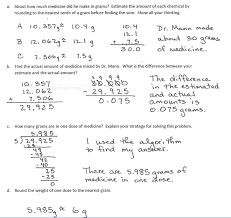 a. About how much medicine did he make in grams? Estimate the amount of each chemical by
rounding to the nearest tenth of a gram before finding the sum. Show all your thinking.
A 10.357g ≈ 10.4 g
B 12.062g ≈ 12.1 g
C 7.506g ≈ 7.5 g
10.4
12.1
+ 7.5
30.0
Dr. Mann made
about 30 grams
of medicine.
b. Find the actual amount of medicine mixed by Dr. Mann. What is the difference between your
estimate and the actual amount?
10.357
12.062
+ 7.506
29.925
- 29.925
0.075
The difference
in the estimated
and actual
amounts is
0.075 grams.
c. How many grams are in one dose of medicine? Explain your strategy for solving this problem.
5.985
5 29.925
I used the algorithm
to find my answer.
There are 5.985 grams of
medicine in one dose.
d. Round the weight of one dose to the nearest gram.
5.985g ≈ 6g